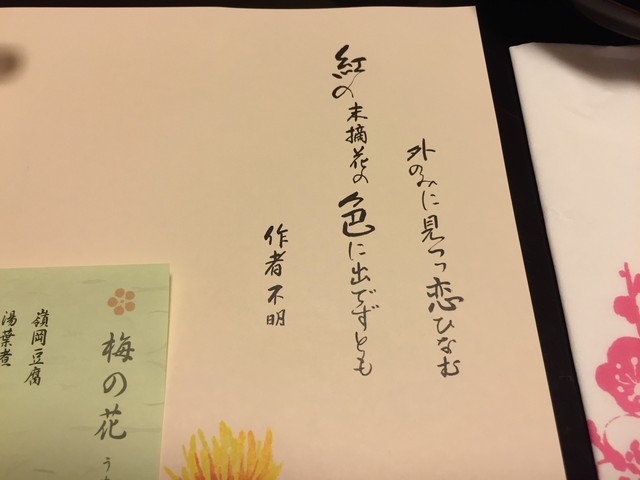 外のみに見つつ恋ひなむ
紅の末摘花の色に出でずとも
作者不明
梅の花
嶺岡豆腐
湯葉煮